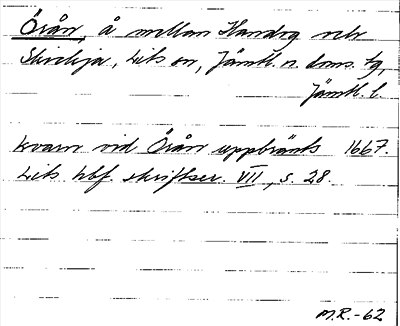 Örån, å mellan Handog och
Skickja, Lits sn, Jämtl. n. doms. tg,
Jämtl. l.
kvarn vid Örån uppbränts 1667.
Lits hbf. skriftser. VII, s. 28.
M.R.-62